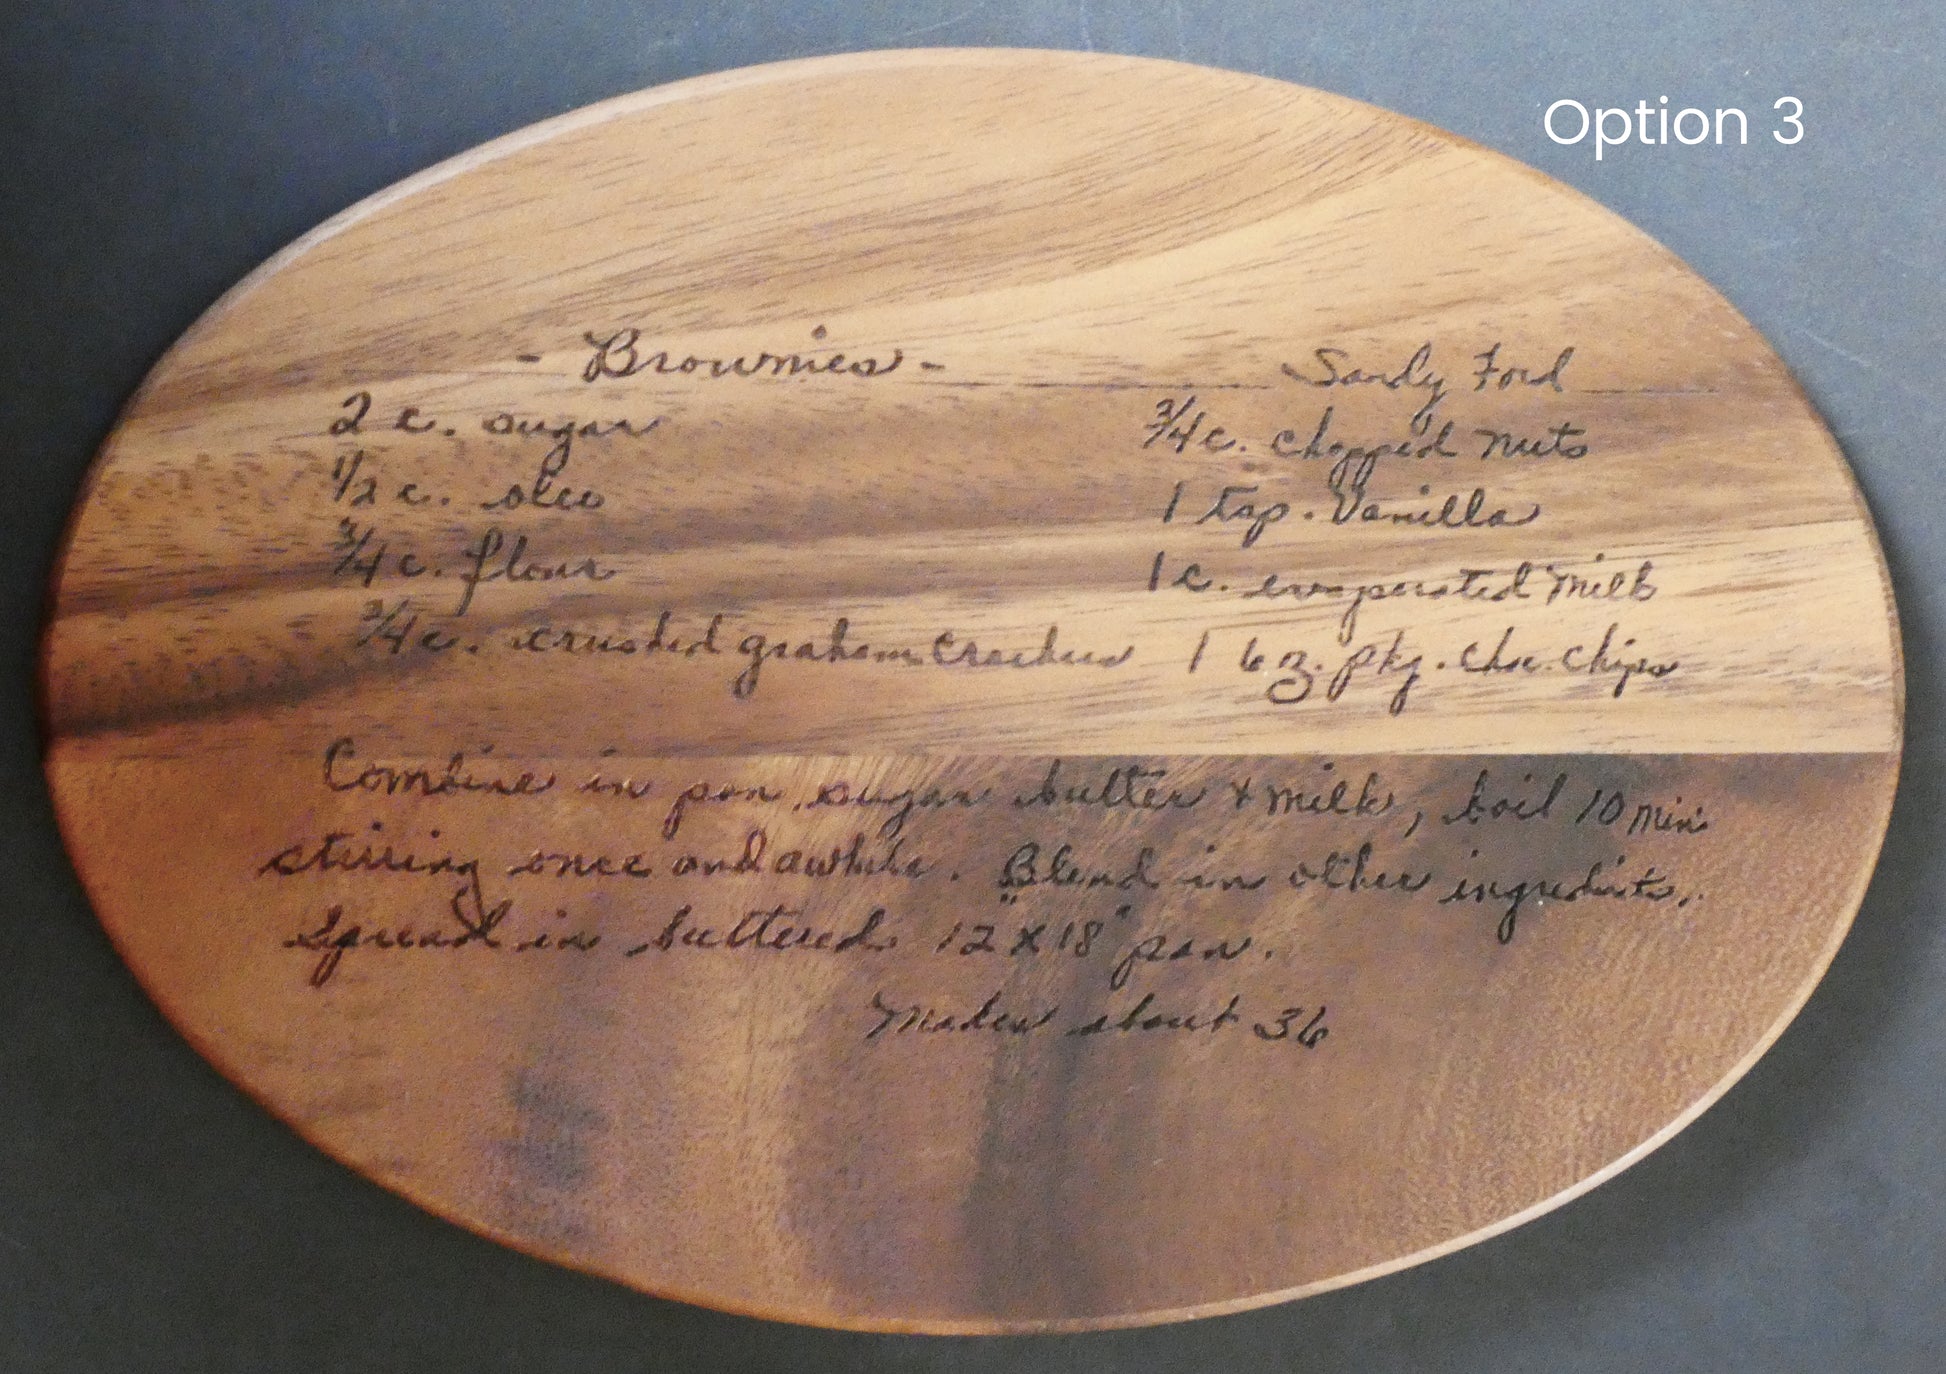 Option 3
- Brownies -
Sandy Ford
2 c. sugar
1/2 c. oleo
3/4 c. flour
3/4 c. crushed graham crackers
3/4 c. chopped nuts
1 tsp. Vanilla
1 c. evaporated milk
1 6 oz. pkg. choc. chips
Combine in pan, sugar butter & milk, boil 10 min
stirring once and awhile. Blend in other ingredients.
Spread in buttered 12" x 18" pan.
Makes about 36